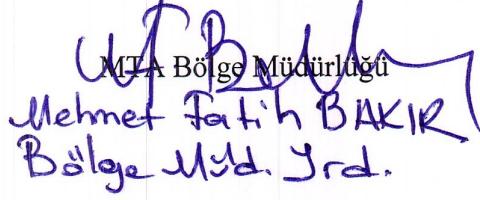 MTA Bölge Müdürlüğü
Mehmet Fatih BAKIR
Bölge Müd. Yrd.